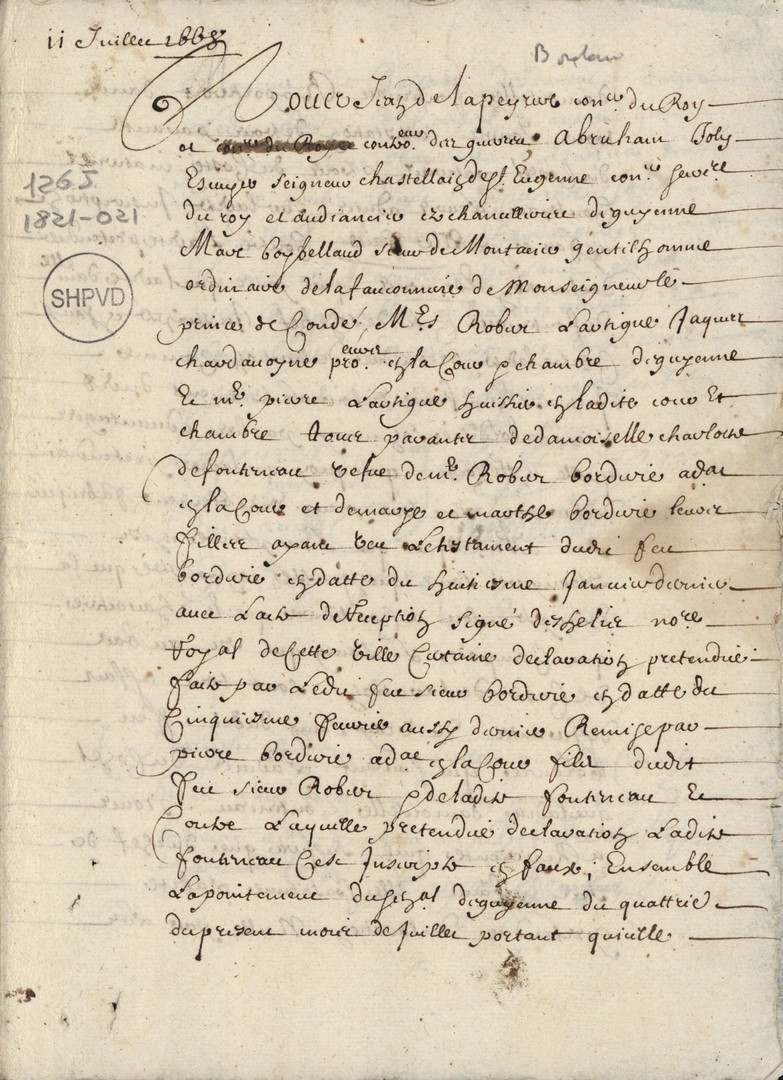 11 Juillet 1668
Bordeaux
Nous Jean de Lapeyrere con.er du Roy
et contro.eur des guerres Abraham Joly
Escuyer seigneur chastellain de S.t Eugenne con.er secre.re
du roy et audiancier en chancellerie de guyenne
Marc boybelland sieur de Montacier gentilhomme
ordinaire de la fauconnerie de Monseigneur le
prince de Condé, M.rs Robert Lartigue Jaques
chardavoyne pro.eurs en la Cour et chambre de guyenne
Et m.e pierre Lartigue huissier en ladite cour Et
chambre Tous parantz de damoiselle charlotte
de fonteneau vefve de m.e Robert borderie adat
en la Cour et de marye et marthe borderie leurs
filles ayant veu le testament dudit feu
borderie en datte du huitiesme Janvier dernier
avec l'acte de reception signé deshelies no.re
Royal de Cette ville Certaine declaration pretendue
faite par ledit feu sieur borderie en datte du
Cinquiesme fevrier aussy dernier Remise par
pierre borderie adat en la Cour filz dudit
feu sieur Robert et de ladite fonteneau Et
Contre laquelle pretendue declaration ladite
fonteneau s'est Inscripte en faux; Ensemble
l'apointement du sen.al de guyenne du quattrie
du present mois de Juillet portant quielle
1265
1821-021
SHPVD